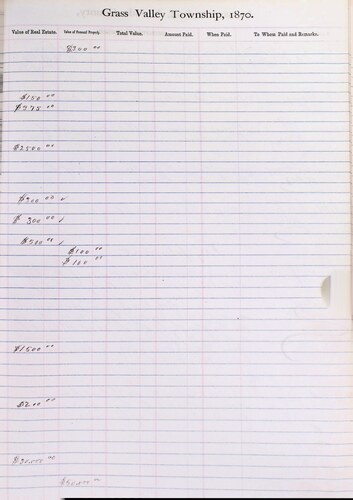 Grass Valley Township, 1870.
Value of Real Estate. Value of Personal Property. Total Value. Amount Paid. When Paid. To Whom Paid and Remarks.
$200 00
$150 00
$2500 00
$200 00
$ 300 00 ✓
$500 00 ✓
$100 00
$100 00
$1500 00
$200 00